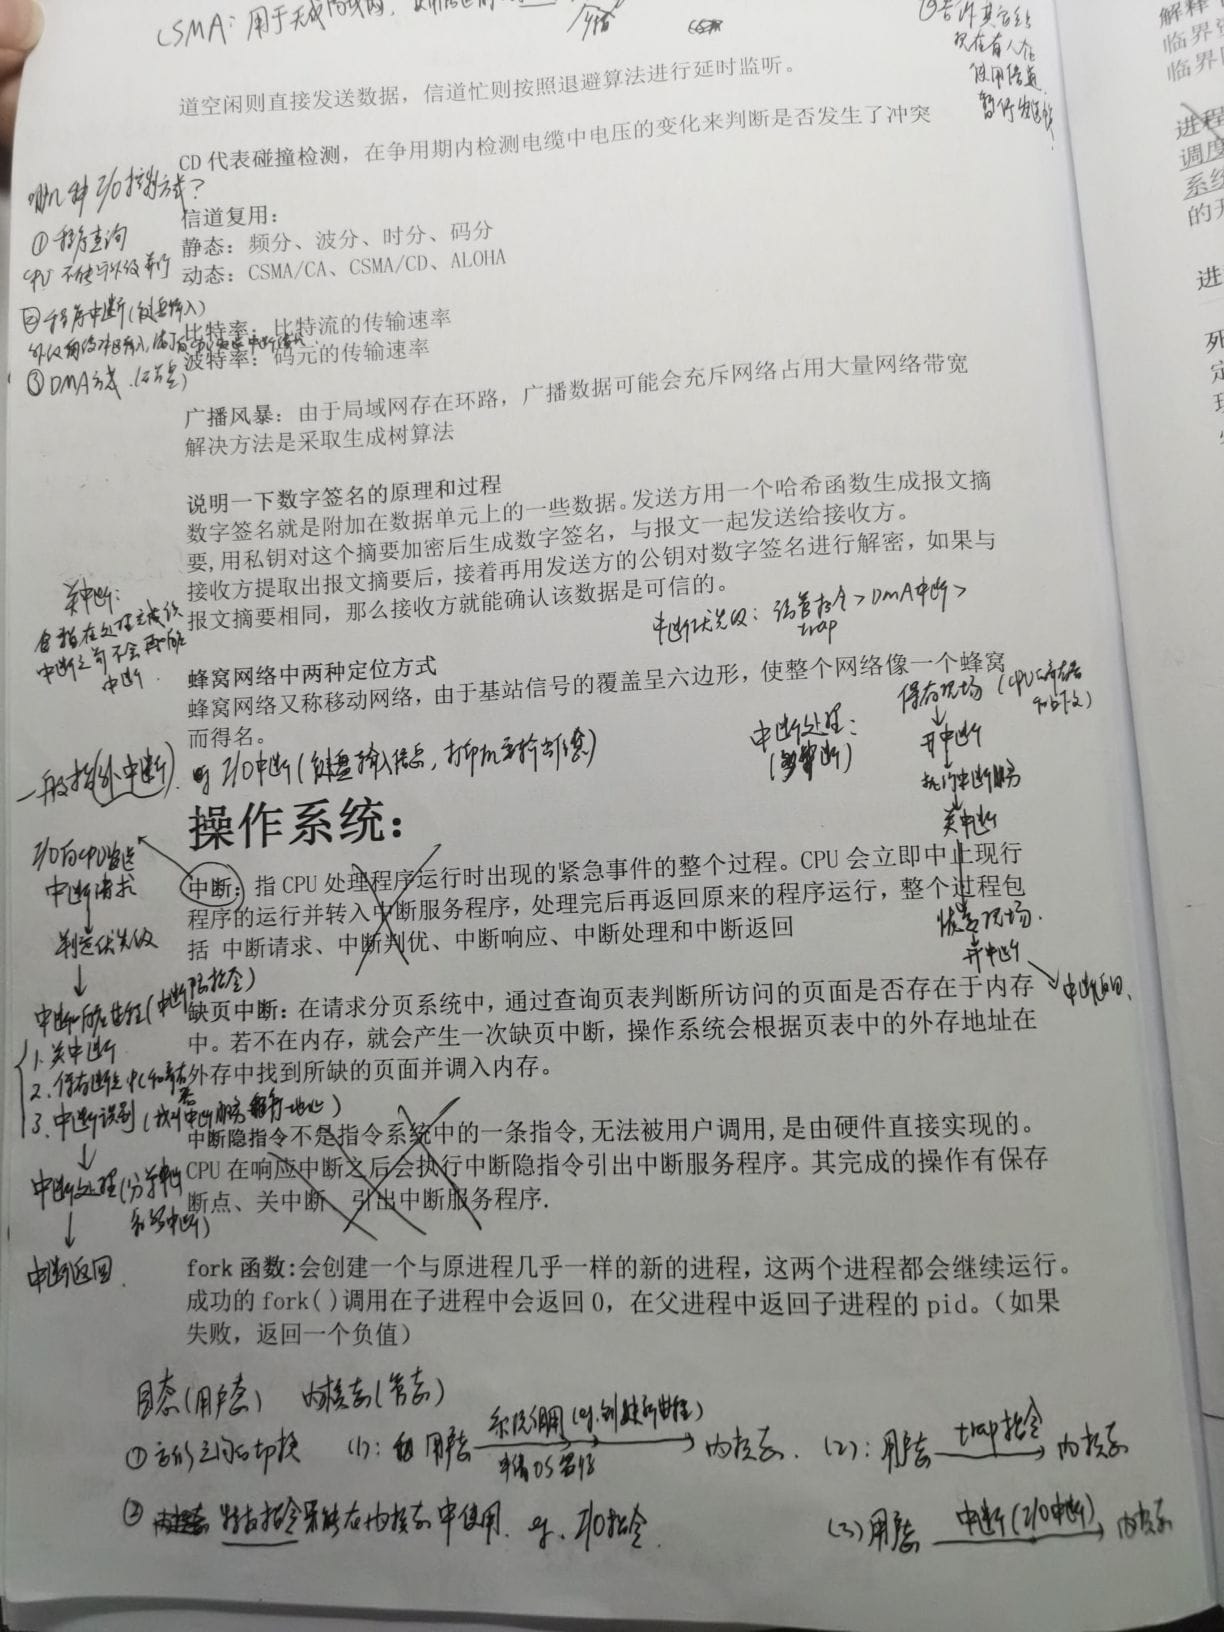 CSMA：用于无线局域网，
③告诉其它站
现在有人在
使用信道
暂停发送
道空闲则直接发送数据，信道忙则按照退避算法进行延时监听。
CD 代表碰撞检测，在争用期内检测电缆中电压的变化来判断是否发生了冲突
哪几种I/O控制方式？
①程序查询
②程序中断(键盘输入)
③DMA方式
信道复用：
静态：频分、波分、时分、码分
动态：CSMA/CA、CSMA/CD、ALOHA
比特率：比特流的传输速率
波特率：码元的传输速率
广播风暴：由于局域网存在环路，广播数据可能会充斥网络占用大量网络带宽
解决方法是采取生成树算法
说明一下数字签名的原理和过程
数字签名就是附加在数据单元上的一些数据。发送方用一个哈希函数生成报文摘
要，用私钥对这个摘要加密后生成数字签名，与报文一起发送给接收方。
接收方提取出报文摘要后，接着再用发送方的公钥对数字签名进行解密，如果与
报文摘要相同，那么接收方就能确认该数据是可信的。
关中断：
中断之前不会再响应
中断
中断优先级：访管指令>DMA中断>
trap
蜂窝网络中两种定位方式
蜂窝网络又称移动网络，由于基站信号的覆盖呈六边形，使整个网络像一个蜂窝
而得名。
一般指(外中断)
I/O中断(键盘输入信息，打印机要输出信息)
中断处理：
保存现场
开中断
执行中断服务
关中断
恢复现场.
开中断
中断返回.
操作系统：
中断：指 CPU 处理程序运行时出现的紧急事件的整个过程。CPU 会立即中止现行
程序的运行并转入中断服务程序，处理完后再返回原来的程序运行，整个过程包
括 中断请求、中断判优、中断响应、中断处理和中断返回
I/O向CPU发送
中断请求
判定优先级
中断响应过程(中断隐指令)
1.关中断
2.保存断点
3.中断识别
中断处理
中断返回.
缺页中断：在请求分页系统中，通过查询页表判断所访问的页面是否存在于内存
中。若不在内存，就会产生一次缺页中断，操作系统会根据页表中的外存地址在
外存中找到所缺的页面并调入内存。
中断隐指令不是指令系统中的一条指令,无法被用户调用,是由硬件直接实现的。
CPU 在响应中断之后会执行中断隐指令引出中断服务程序。其完成的操作有保存
断点、关中断、引出中断服务程序.
fork 函数:会创建一个与原进程几乎一样的新的进程，这两个进程都会继续运行。
成功的 fork()调用在子进程中会返回 0，在父进程中返回子进程的 pid。（如果
失败，返回一个负值）
目态(用户态) 内核态(管态)
(1)：用户态 系统调用(eg.创建新进程) 内核态. (2)：用户态 trap指令 内核态
② 特权指令只能在内核态中使用. eg. I/O指令.
(3)用户态 中断(I/O中断) 内核态